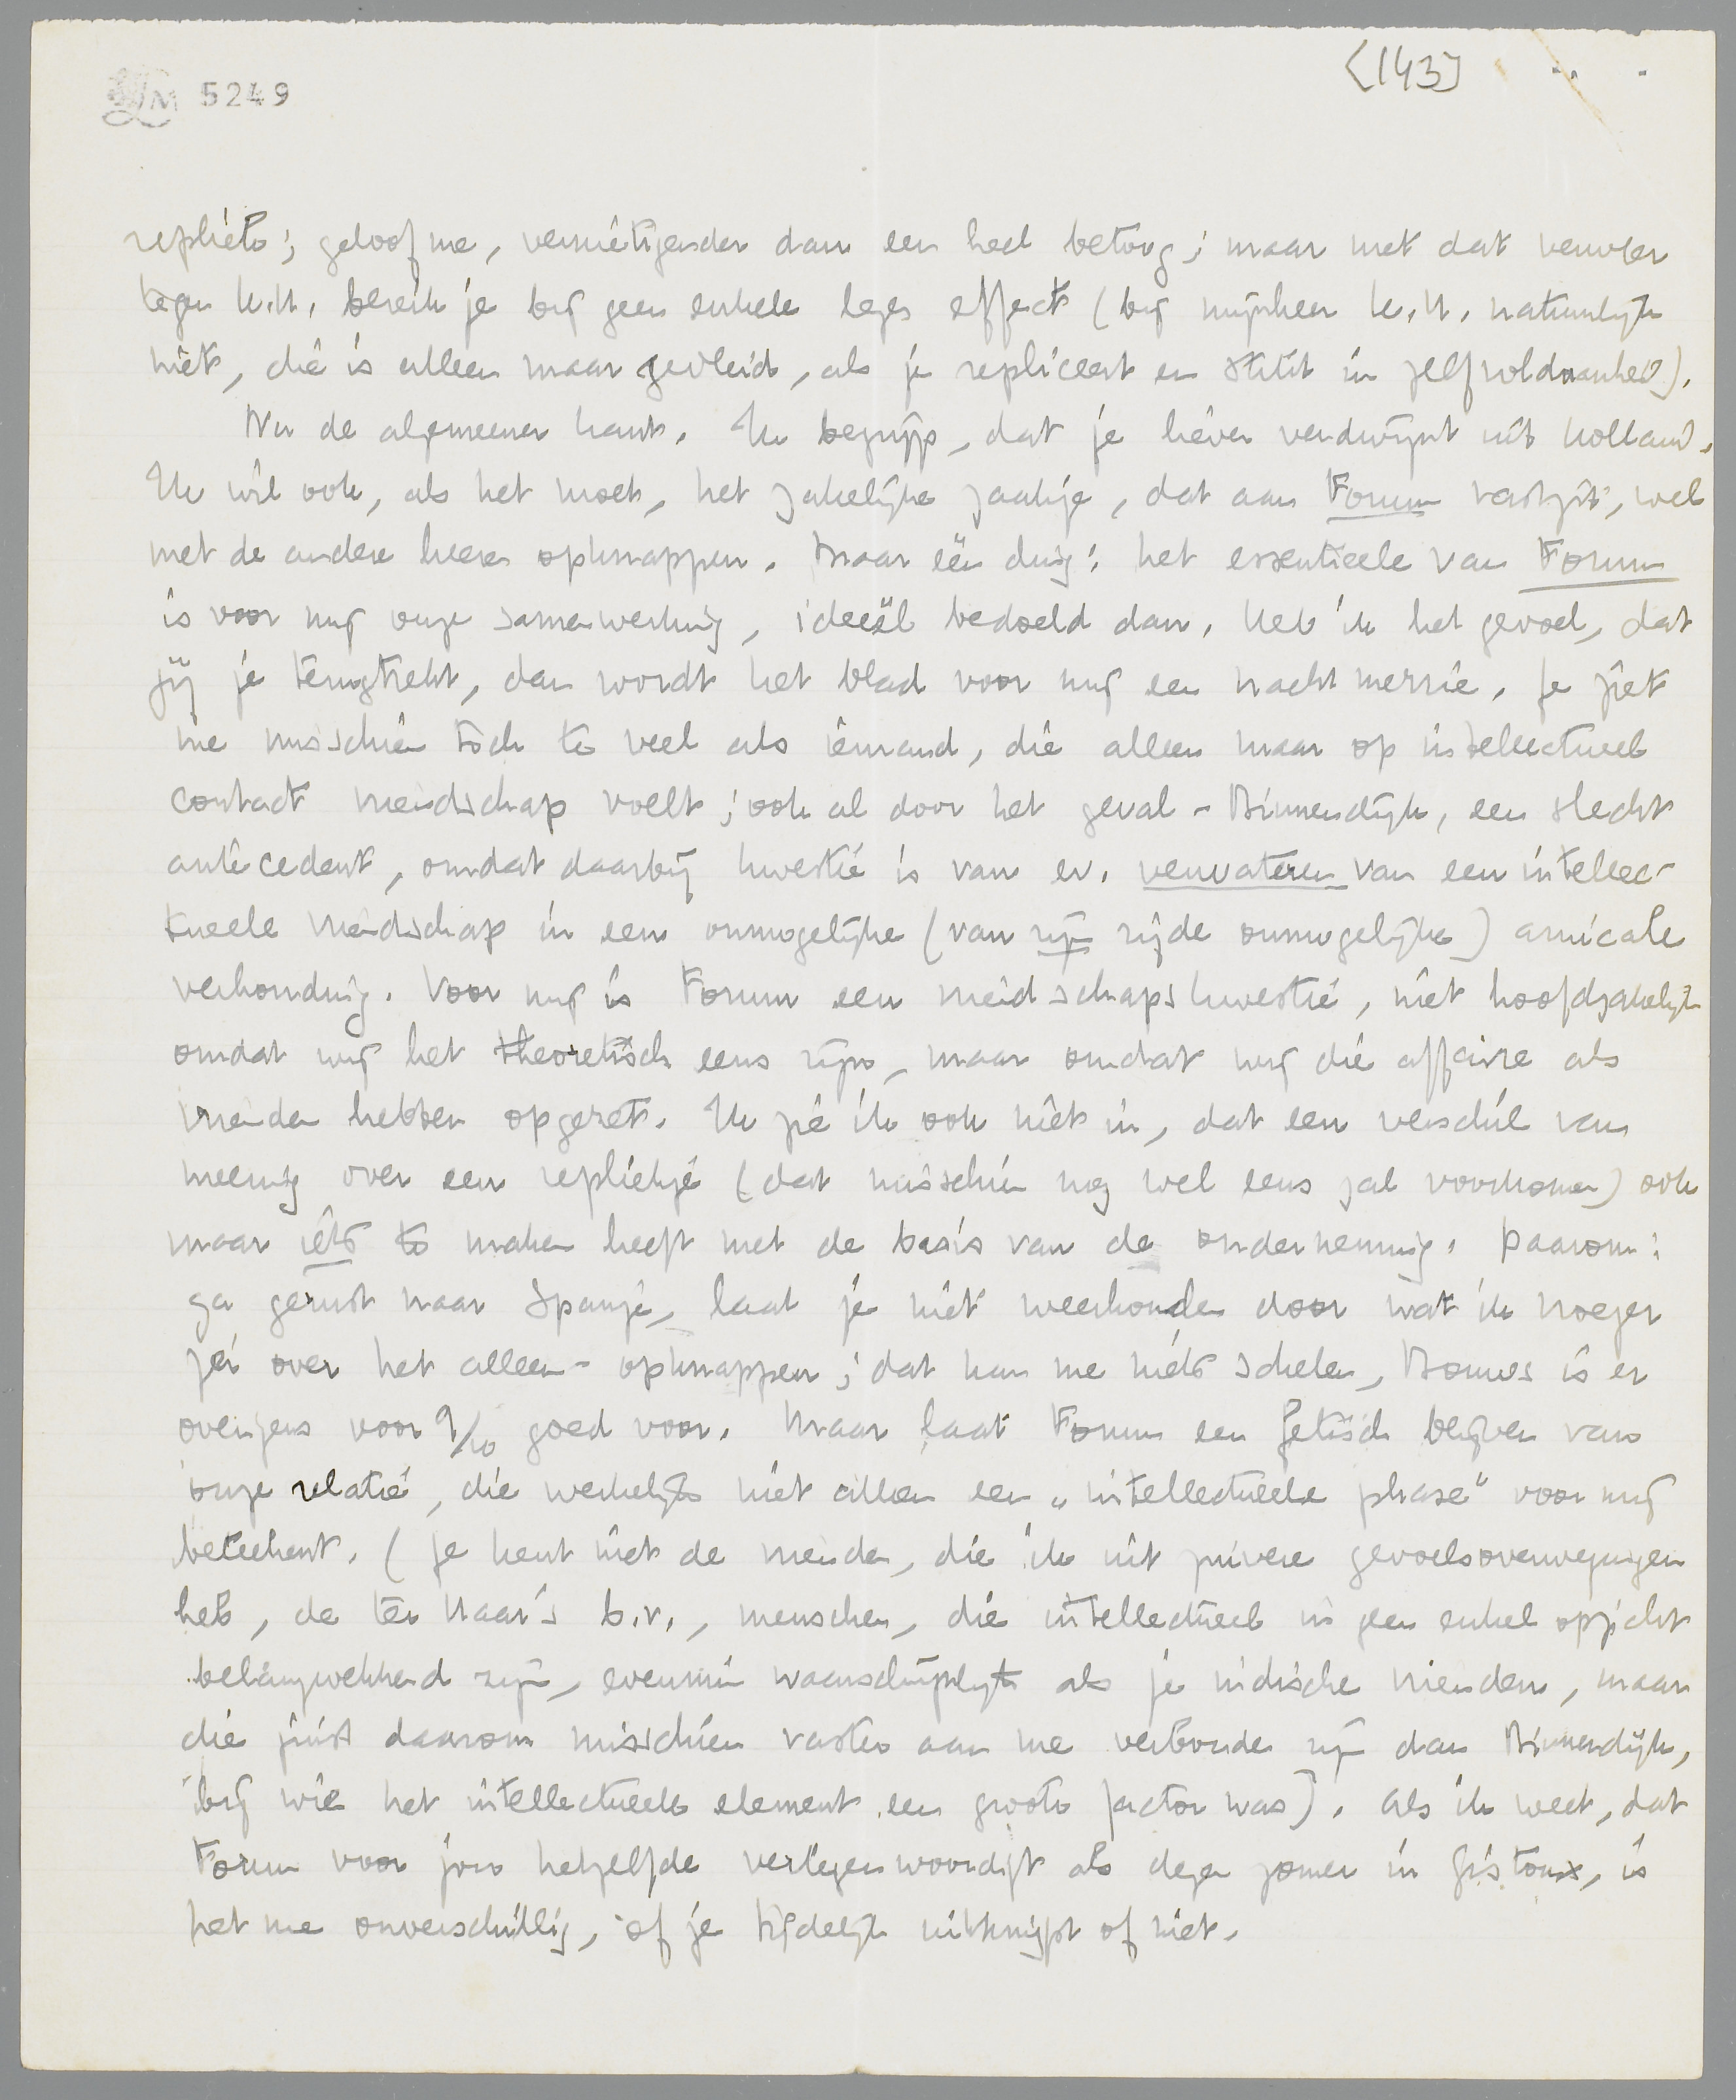 LM 5249
[143]
repliek; geloof me, vernietigender dan een heel betoog; maar met dat verweer
tegen K.H. bereik je bij geen enkele lezer effect (bij mijnheer K.H. natuurlijk
niet, die is alleen maar gevleid, als je repliceert en stikt in zelfvoldaanheid).
Nu de algemeener kant. Ik begrijp, dat je liever verdwijnt uit Holland.
Ik wil ook, als het moet, het zakelijke zaakje, dat aan Forum vastzit, wel
met de andere heeren opknappen. Maar één ding: het essentieele van Forum
is voor mij onze samenwerking, ideëel bedoeld dan. Heb ik het gevoel, dat
jij je terugtrekt, dan wordt het blad voor mij een nachtmerrie. Je ziet
me misschien toch te veel als iemand, die alleen maar op intellectueel
contact vriendschap voelt; ook al door het geval-Binnendijk, een slecht
antecedent, omdat daarbij kwestie is van ev. verwateren van een intellec-
tueele vriendschap in een onmogelijke (van zijn zijde onmogelijke) amicale
verhouding. Voor mij is Forum een vriendschapskwestie, niet hoofdzakelijk
omdat wij het theoretisch eens zijn, maar omdat wij die affaire als
vrienden hebben opgezet. Ik zie ik ook niet in, dat een verschil van
meening over een repliekje (dat misschien nog wel eens zal voorkomen) ook
maar iets te maken heeft met de basis van de onderneming. Daarom:
ga gerust naar Spanje, laat je niet weerhouden door wat ik vroeger
zei over het alleen-opknappen; dat kan me niets schelen, Bouws is er
overigens voor 9/10 goed voor. Maar laat Forum een fetisch blijven van
onze relatie, die werkelijk niet alleen een „intellectueele phase" voor mij
beteekent. (Je kent niet de vrienden, die ik uit zuivere gevoelsoverwegingen
heb, de ter Haar's b.v., menschen, die intellectueel in geen enkel opzicht
belangwekkend zijn, evenmin waarschijnlijk als je indische vrienden, maar
die juist daarom misschien vaster aan me verbonden zijn dan Binnendijk,
bij wie het intellectueele element een groote factor was). Als ik weet, dat
Forum voor jou hetzelfde vertegenwoordigt als dezen zomer in Gistoux, is
het me onverschillig, of je tijdelijk uitknijpt of niet.